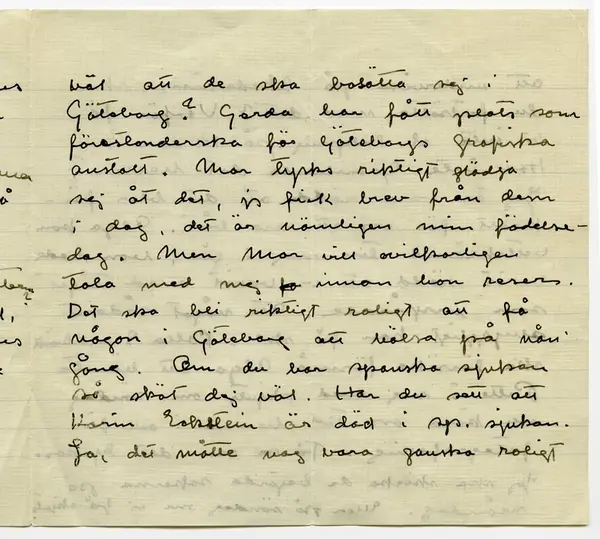 väl att de ska bosätta sej i
Göteborg? Gerda har fått plats som
föreståndarska för Göteborgs Grafiska
anstalt. Mor tycks riktigt glädja
sej åt det, jag fick brev från dem
i dag, det är nämligen min födelse-
dag. Men Mor vill ovillkorligen
tala med mej innan hon reser.
Det ska bli riktigt roligt att få
någon i Göteborg att hälsa på nån
gång. Om du har spanska sjukan
så sköt dej väl. Har du sett att
Karin Eckstein är död i sp. sjukan.
Ja, det måtte nog vara ganska roligt